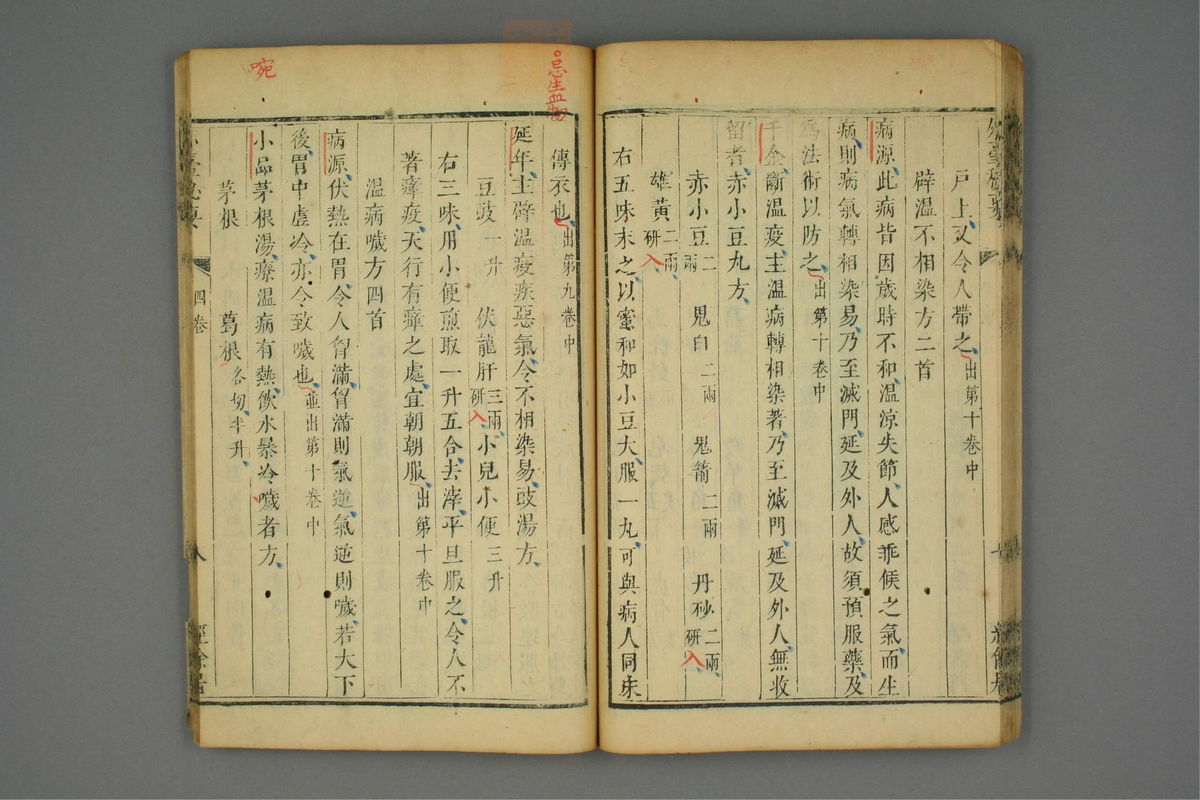 戶上又令人帶之出第十卷中
辟溫不相染方二首
病源此病皆因歲時不和溫涼失節人感乖候之氣而生
病則病氣轉相染易乃至滅門延及外人故須預服藥及
為法術以防之出第十卷中
千金斷溫疫主溫病轉相染著乃至滅門延及外人無收
留者赤小豆丸方
赤小豆二兩 鬼臼二兩 鬼箭二兩 丹砂二兩研入
雄黃二兩研入
右五味末之以蜜和如小豆大服一丸可與病人同床
忌生血物
傳衣也出第九卷中
延年主辟溫疫疾惡氣令不相染易豉湯方
豆豉一升 伏龍肝三兩研入 小兒小便三升
右三味用小便煎取一升五合去滓平旦服之令人不
著瘴疫天行有瘴之處宜朝朝服出第十卷中
溫病噦方四首
病源伏熱在胃令人胷滿胷滿則氣逆氣逆則噦若大下
後胃中虛冷亦令致噦也並出第十卷中
小品茅根湯療溫病有熱飲水暴冷噦者方
茅根 葛根各切半升
啘
四卷
八